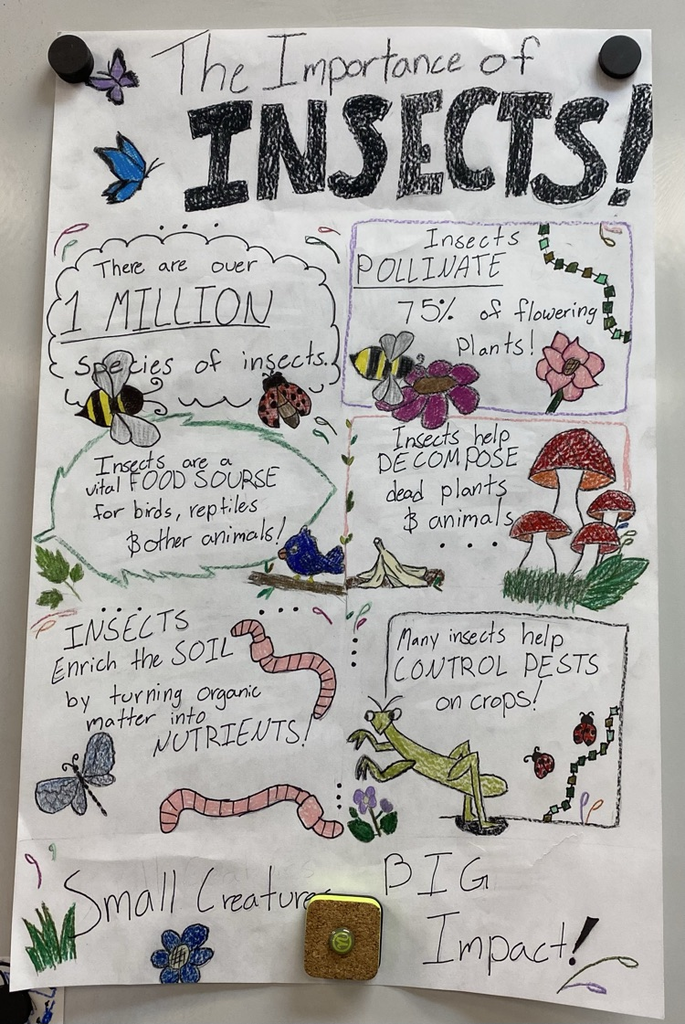 The Importance of
INSECTS!
There are over
1 MILLION
species of insects.
Insects
POLLINATE
75% of flowering
plants!
Insects are a
vital FOOD SOURSE
for birds, reptiles
& other animals!
Insects help
DECOMPOSE
dead plants
& animals
INSECTS
Enrich the SOIL
by turning organic
matter into
NUTRIENTS!
Many insects help
CONTROL PESTS
on crops!
Small Creatures
BIG
Impact!